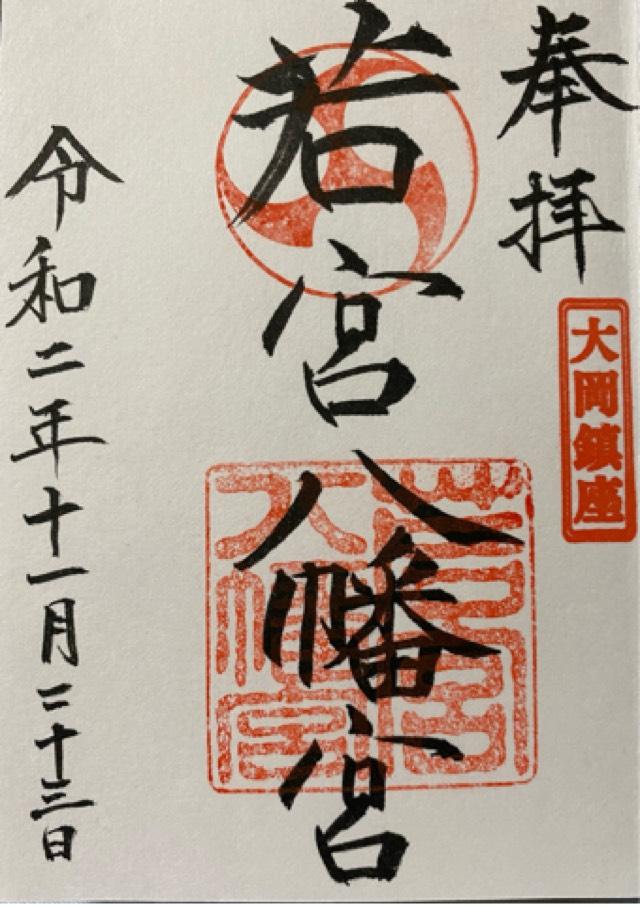 奉拝
大岡鎮座
若宮八幡宮
若宮八幡宮
令和二年十一月二十三日